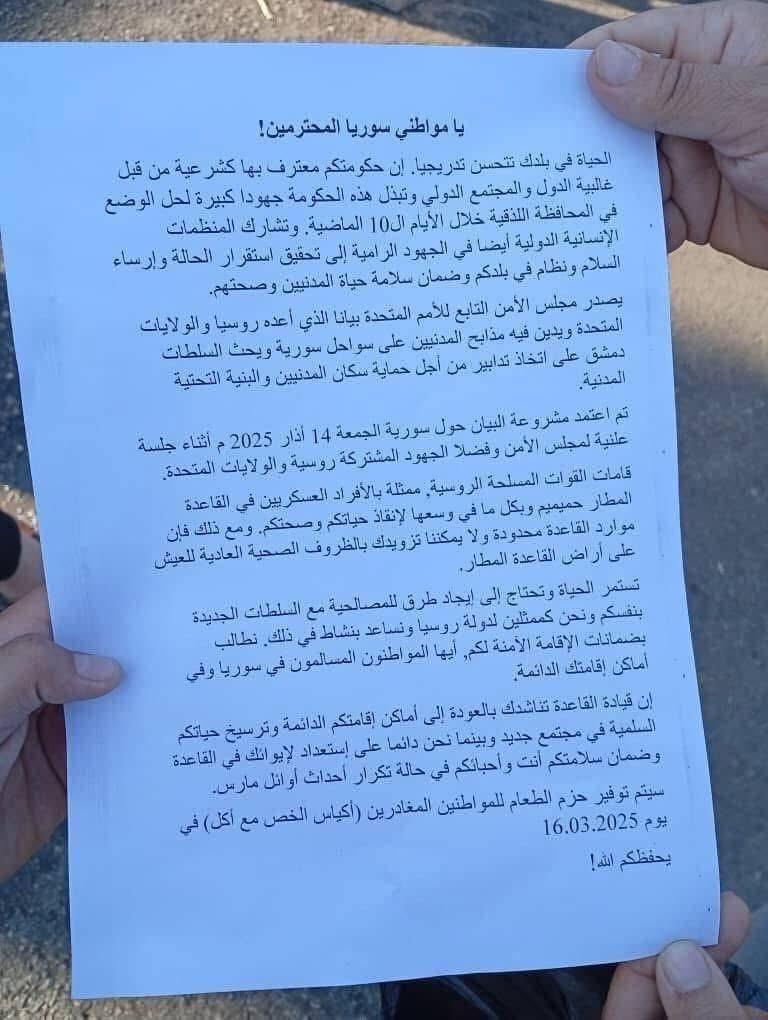 يا مواطني سوريا المحترمين!
الحياة في بلدك تتحسن تدريجيا. إن حكومتكم معترف بها كشرعية من قبل
غالبية الدول والمجتمع الدولي وتبذل هذه الحكومة جهودا كبيرة لحل الوضع
في المحافظة اللذقية خلال الأيام ال10 الماضية. وتشارك المنظمات
الإنسانية الدولية أيضا في الجهود الرامية إلى تحقيق استقرار الحالة وإرساء
السلام ونظام في بلدكم وضمان سلامة حياة المدنيين وصحتهم.
يصدر مجلس الأمن التابع للأمم المتحدة بيانا الذي أعده روسيا والولايات
المتحدة ويدين فيه مذابح المدنيين على سواحل سورية ويحث السلطات
دمشق على اتخاذ تدابير من أجل حماية سكان المدنيين والبنية التحتية
المدنية.
تم اعتمد مشروعة البيان حول سورية الجمعة 14 أذار 2025 م أثناء جلسة
علنية لمجلس الأمن وفضلا الجهود المشتركة روسية والولايات المتحدة.
قامات القوات المسلحة الروسية, ممثلة بالأفراد العسكريين في القاعدة
المطار حميميم وبكل ما في وسعها لإنقاذ حياتكم وصحتكم. ومع ذلك فإن
موارد القاعدة محدودة ولا يمكننا تزويدك بالظروف الصحية العادية للعيش
على أراض القاعدة المطار.
تستمر الحياة وتحتاج إلى إيجاد طرق للمصالحية مع السلطات الجديدة
بنفسكم ونحن كممثلين لدولة روسيا ونساعد بنشاط في ذلك. نطالب
بضمانات الإقامة الأمنة لكم, أيها المواطنون المسالمون في سوريا وفي
أماكن إقامتك الدائمة.
إن قيادة القاعدة تناشدك بالعودة إلى أماكن إقامتكم الدائمة وترسيخ حياتكم
السلمية في مجتمع جديد وبينما نحن دائما على إستعداد لإيوائك في القاعدة
وضمان سلامتكم أنت وأحبائكم في حالة تكرار أحداث أوائل مارس.
سيتم توفير حزم الطعام للمواطنين المغادرين (أكياس الخص مع أكل) في
يوم 16.03.2025
يحفظكم الله!